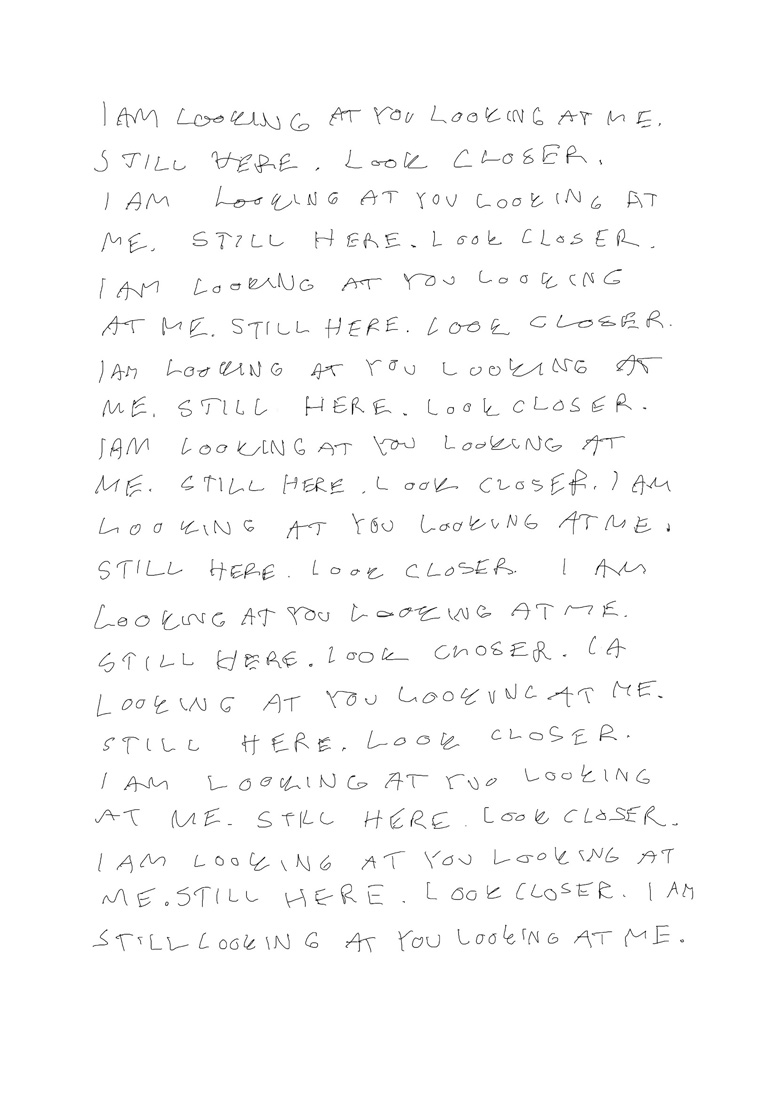 I AM LOOKING AT YOU LOOKING AT ME.
STILL HERE. LOOK CLOSER.
I AM LOOKING AT YOU LOOKING AT
ME. STILL HERE. LOOK CLOSER.
I AM LOOKING AT YOU LOOKING
AT ME. STILL HERE. LOOK CLOSER.
I AM LOOKING AT YOU LOOKING AT
ME. STILL HERE. LOOK CLOSER.
I AM LOOKING AT YOU LOOKING AT
ME. STILL HERE. LOOK CLOSER. I AM
LOOKING AT YOU LOOKING AT ME.
STILL HERE. LOOK CLOSER I AM
LOOKING AT YOU LOOKING AT ME.
STILL HERE. LOOK CLOSER. I A
LOOKING AT YOU LOOKING AT ME.
STILL HERE. LOOK CLOSER.
I AM LOOKING AT YUO LOOKING
AT ME. STILL HERE. LOOK CLOSER.
I AM LOOKING AT YOU LOOKING AT
ME. STILL HERE. LOOK CLOSER. I AM
STILL LOOKING AT YOU LOOKING AT ME.